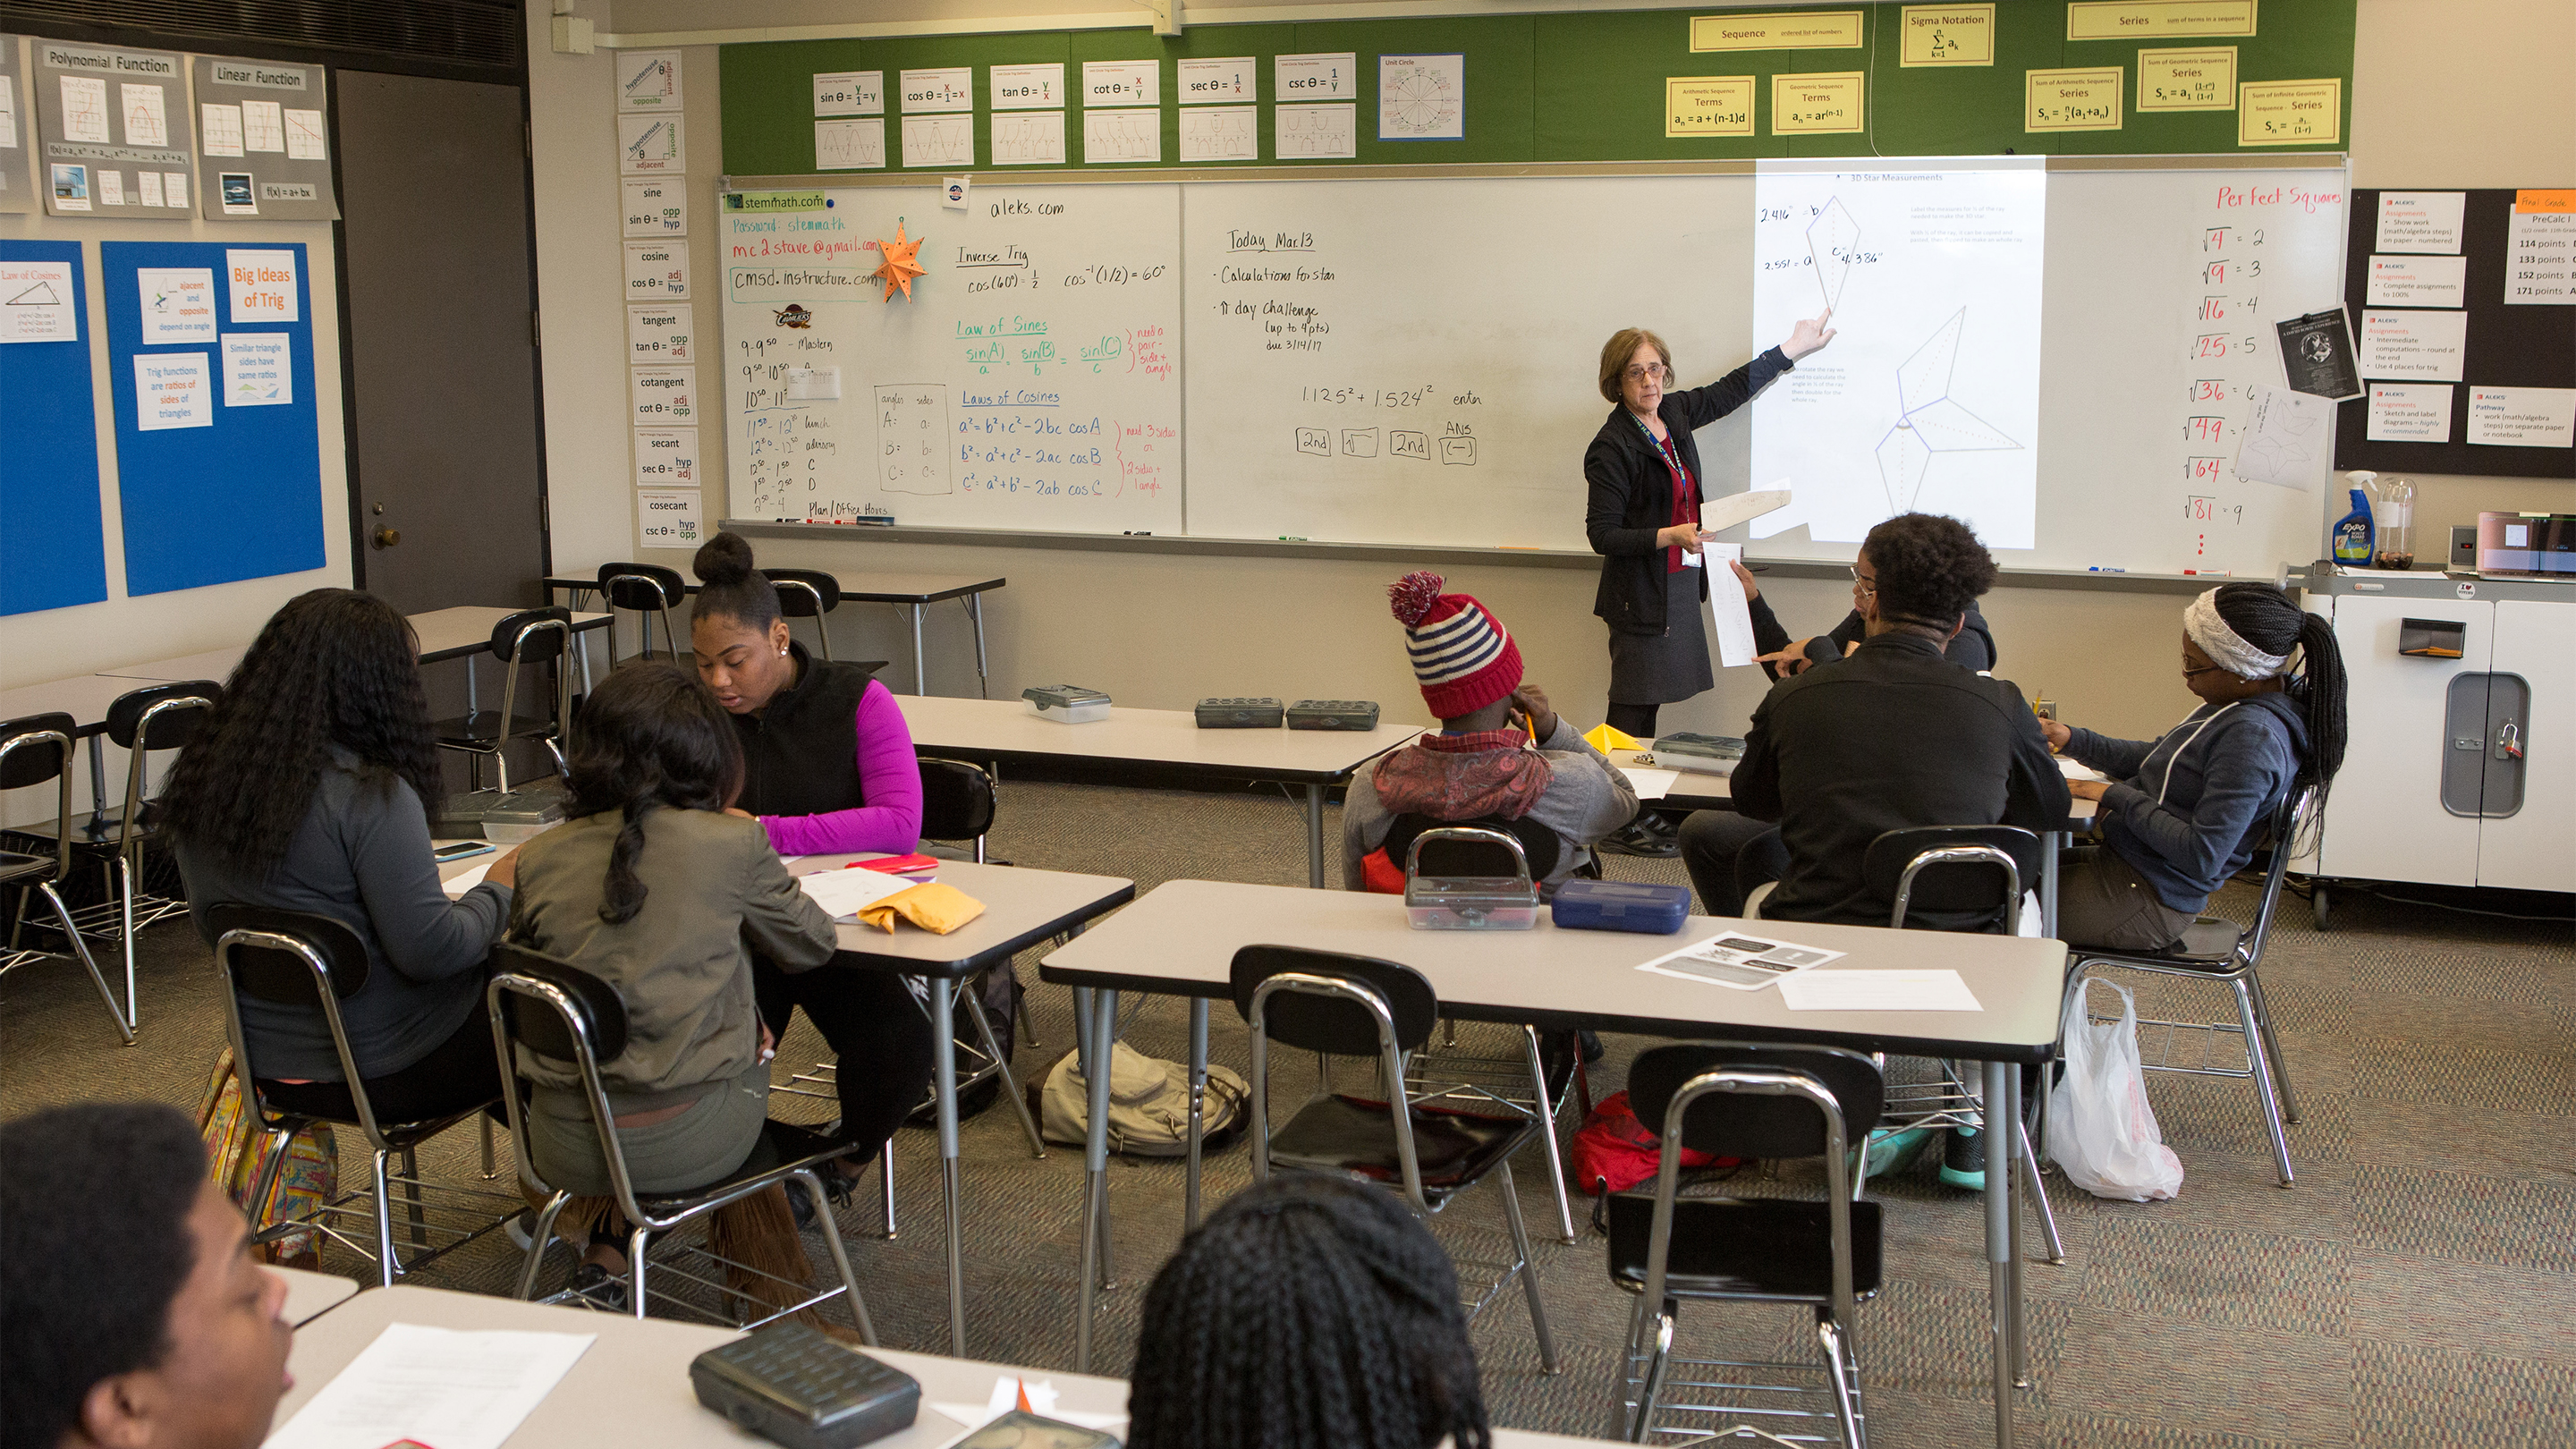 Polynomial Function
Linear Function
f(x) = a+ bx
Law of Cosines
ajacent
and
opposite
depend on angle
Big Ideas
of Trig
Trig functions
are ratios of
sides of
triangles
Similar triangle
sides have
same ratios
hypotenuse
θ
adjacent
opposite
hypotenuse
θ
opposite
adjacent
sine
sin θ = opp/hyp
cosine
cos θ = adj/hyp
tangent
tan θ = opp/adj
cotangent
cot θ = adj/opp
secant
sec θ = hyp/adj
cosecant
csc θ = hyp/opp
sin θ = y/1 = y
cos θ = x/1 = x
tan θ = y/x
cot θ = x/y
sec θ = 1/x
csc θ = 1/y
Unit Circle
Sequence ordered list of numbers
Sigma Notation
n
Σ ak
k=1
Series sum of terms in a sequence
Arithmetic Sequence
Terms
an = a + (n-1)d
Geometric Sequence
Terms
an = ar(n-1)
Sum of Arithmetic Sequence
Series
Sn = n/2 (a1+an)
Sum of Geometric Sequence
Series
Sn = a1 (1-rn)/(1-r)
Sum of Infinite Geometric
Sequence - Series
Sn = a1/(1-r)
stemmath.com
Password: stemmath
mc2stave@gmail.com
cmsd.instructure.com
CAVALIERS
9-9:50 - Mastery
9:50-10:50
lunch
advisory
12:50-1:50 C
1:50-2:50 D
2:50-4 Plan/Office Hours
aleks.com
Inverse Trig
cos(60°) = 1/2 cos⁻¹(1/2) = 60°
Law of Sines
sin(A)/a = sin(B)/b = sin(C)/c
need a
pair -
side +
angle
angles sides
A: a:
B: b:
C: c:
Laws of Cosines
a² = b² + c² - 2bc cosA
b² = a² + c² - 2ac cosB
c² = a² + b² - 2ab cos C
need 3 sides
or
2 sides +
1 angle
Today Mar.13
· Calculations for star
· π day challenge
(up to 4pts)
due 3/14/17
1.125² + 1.524² enter
ANS
2nd √ 2nd (-)
3D Star Measurements
2.416" = b
2.551 = a
c = 4.386"
Perfect Squares
√4 = 2
√9 = 3
√16 = 4
√25 = 5
√36 = 6
√49 =
√64 =
√81 = 9
ALEKS
Assignments
• Show work
(math/algebra steps)
on paper - numbered
ALEKS
Assignments
• Complete assignments
to 100%
ALEKS
Assignments
• Intermediate
computations – round at
the end
• Use 4 places for trig
ALEKS
Assignments
• Sketch and label
diagrams – highly
recommended
ALEKS
Pathway
• work (math/algebra
steps) on separate paper
or notebook
Final Grade
PreCalc I
114 points
133 points
152 points
171 points
EXPO